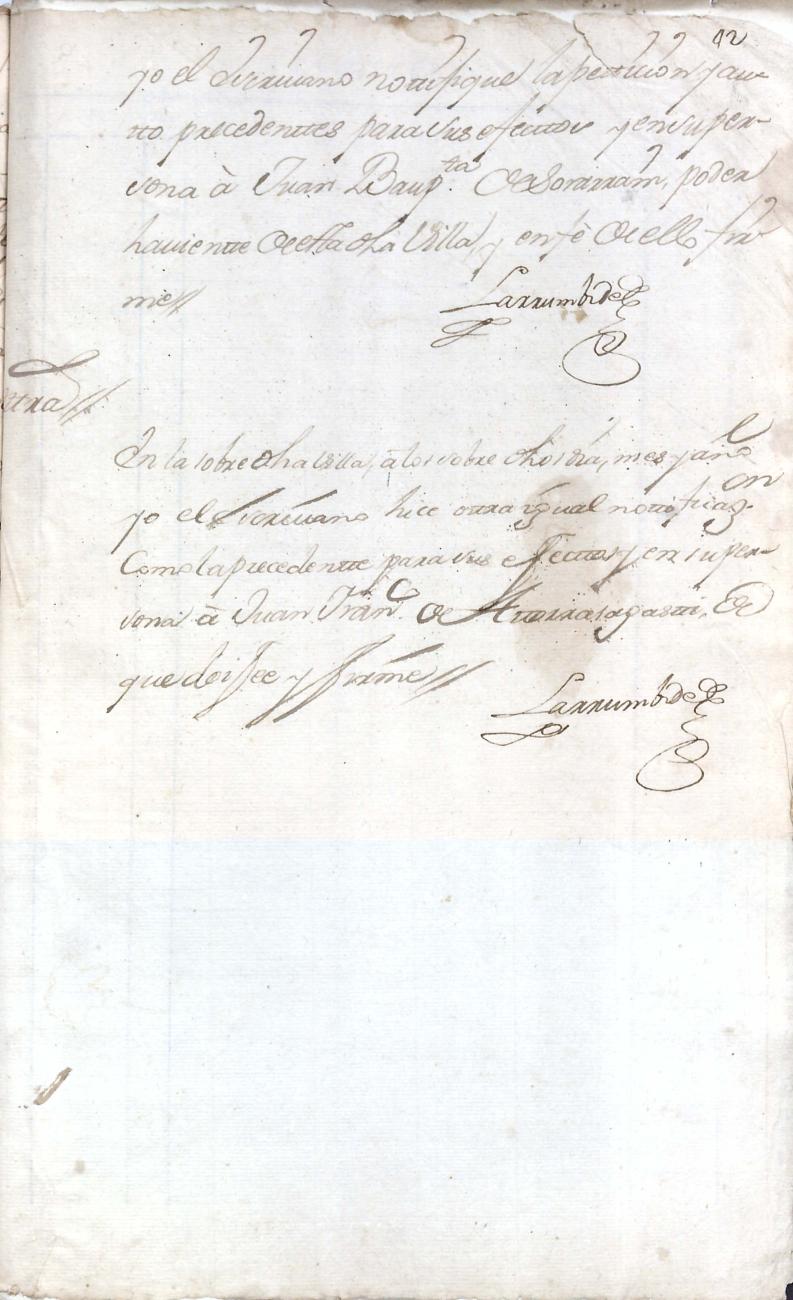 42
yo el Screuano nottifique la pettizion y au-
tto precedenttes para sus efecttos y en su per-
sona â Juan Baup.ta de Sorarrain, poder
hauientte de esta dha Villa, y en fè de ello fir
mè//
Larrumbide
otra//
En la sobre dha Villa, â los sobre dhos dia, mes y año
yo el Screuano hice ottra igual nottificaz.on
Como la precedentte para sus efecttos y en su per-
sona â Juan Fran.co de Atorrasagastti, de
que doi fee y firmè//
Larrumbide